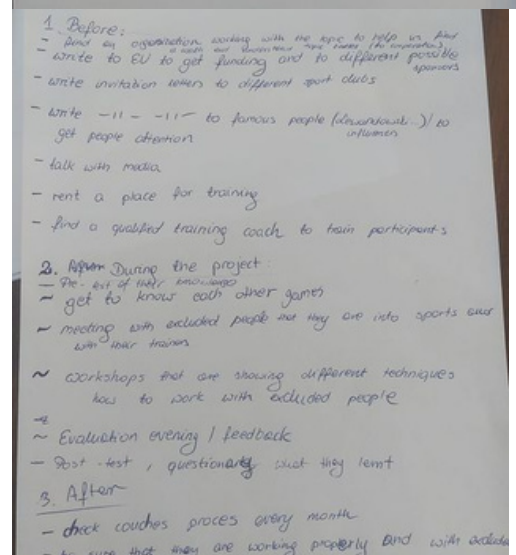 1. Before:
- find an organisation working with the topic to help us find
- write to EU to get funding and to different possible
sponsors
- write invitation letters to different sport clubs
- write -11- -11- to famous people (Lewandowski...)/ to
get people attention
influencers
- talk with media
- rent a place for training
- find a qualified training coach to train participants
2. During the project:
- Pre-test of their knowledge
~ get to know each other games
~ meeting with excluded people that they are into sports
with their trainers
~ workshops that are showing different techniques
how to work with excluded people
~ Evaluation evening / feedback
- Post-test, what they lernt
3. After
- check couches proces every month
- to sure that they are working properly and with